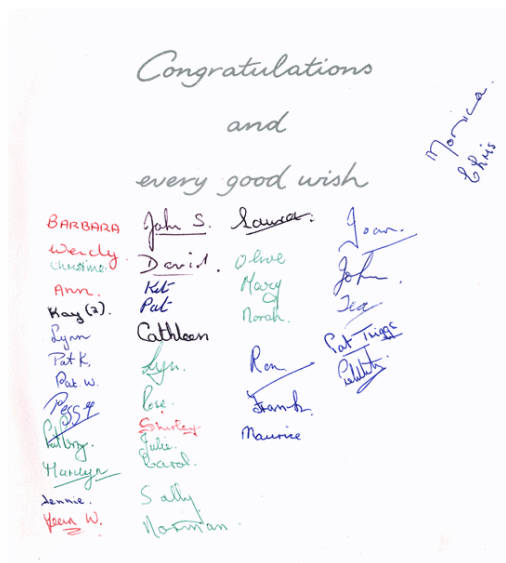 Congratulations
and
every good wish
Monica.
Chris
BARBARA
Wendy.
Christine.
Ann.
Kay (2).
Lynn
Pat K.
Pat. W.
Peggy
Marilyn
Jennie.
W.
John S.
David.
Kit
Pat
Cathleen
Lyn.
Rose.
Shirley
Julie.
Carol.
Sally.
Norman.
Laura.
Olive
Mary
Norah.
Ron
Frank.
Maurice
Joan.
John.
Pat Triggs